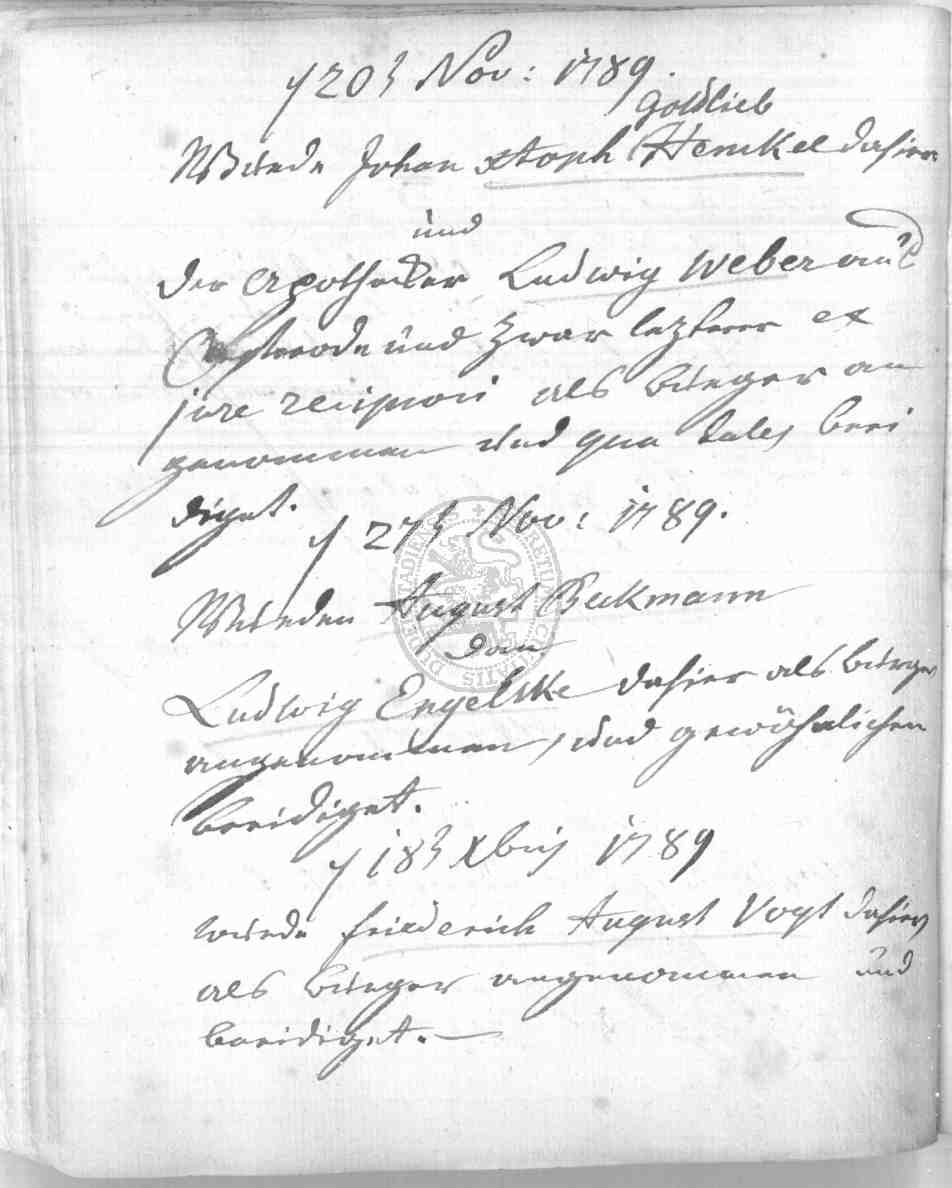 d 20t Nov: 1789.
Gottlieb
Wurde Johan xtoph Henckel dahier
und
der Apothecker Ludwig Weber aus
Osterode und zwar lezterer ex
jure reciproci als bürger an
genommen und qua tales beei
diget.
d 27t Nov: 1789.
Wurden August Beckmann
dan
Ludwig Engelcke dahier als bürger
angenommen, und gewöhnlichen
beeidiget.
d 18t Xbris 1789
wurde friederich August Vogt dahier
als bürger angenommen und
beeidiget.